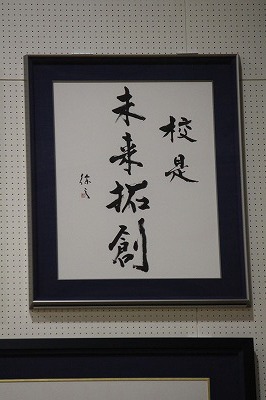 校是
未来拓創